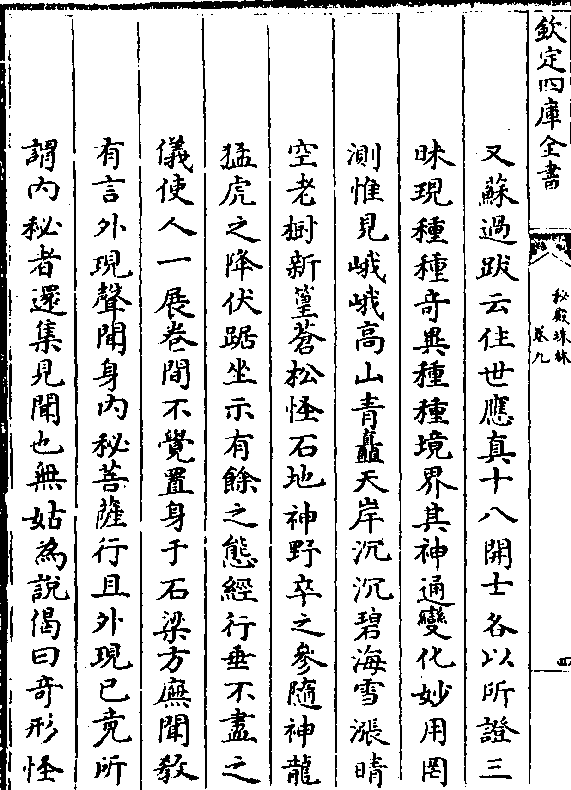 欽定四庫全書
秘殿珠林
卷九
四
又蘇過跋云住世應真十八開士各以所證三
昧現種種奇異種種境界其神通變化妙用罔
測惟見峨峨高山青矗天岸沉沉碧海雪漲晴
空老樹新篁蒼松怪石地神野卒之參隨神龍
猛虎之降伏踞坐示有餘之態經行垂不盡之
儀使人一展卷間不覺置身于石梁方廡聞教
有言外現聲聞身內秘菩薩行且外現已竟所
謂內秘者還集見聞也無姑為說偈曰奇形怪